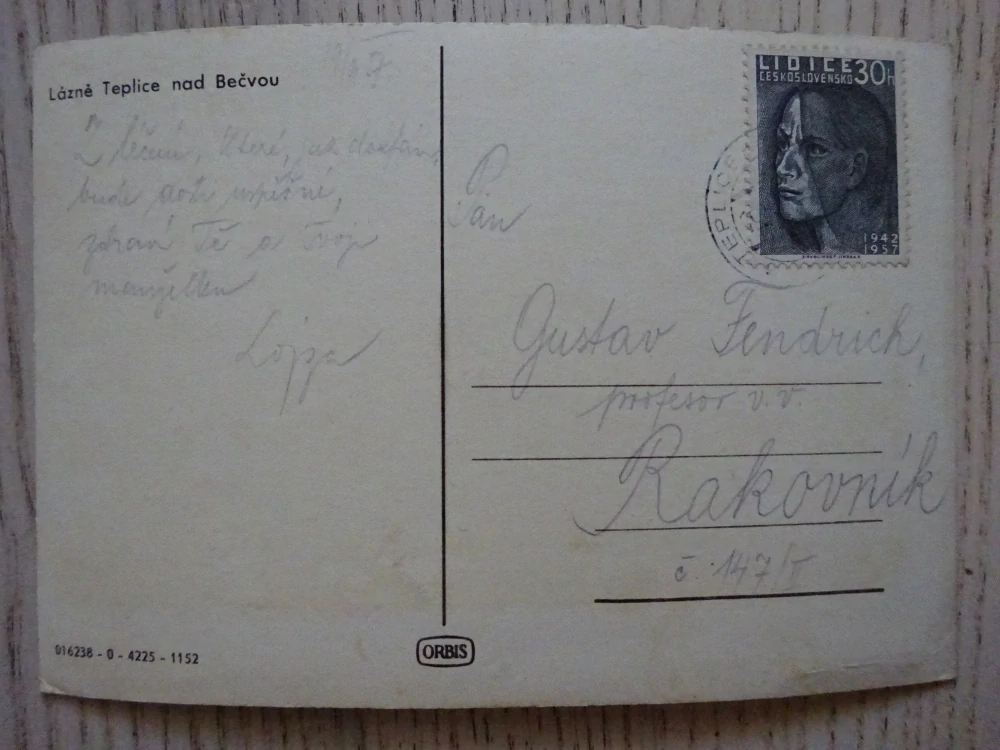 Lázně Teplice nad Bečvou
Z léčení, které, jak doufám,
bude dosti úspěšné,
zdraví Tě a Tvoji
manželku
Lojza
LIDICE
ČESKOSLOVENSKO 30h
1942
1957
TEPLICE
Pan
Gustav Fendrich,
profesor v.v.
Rakovník
č. 147/I
016238 - 0 - 4225 - 1152
ORBIS